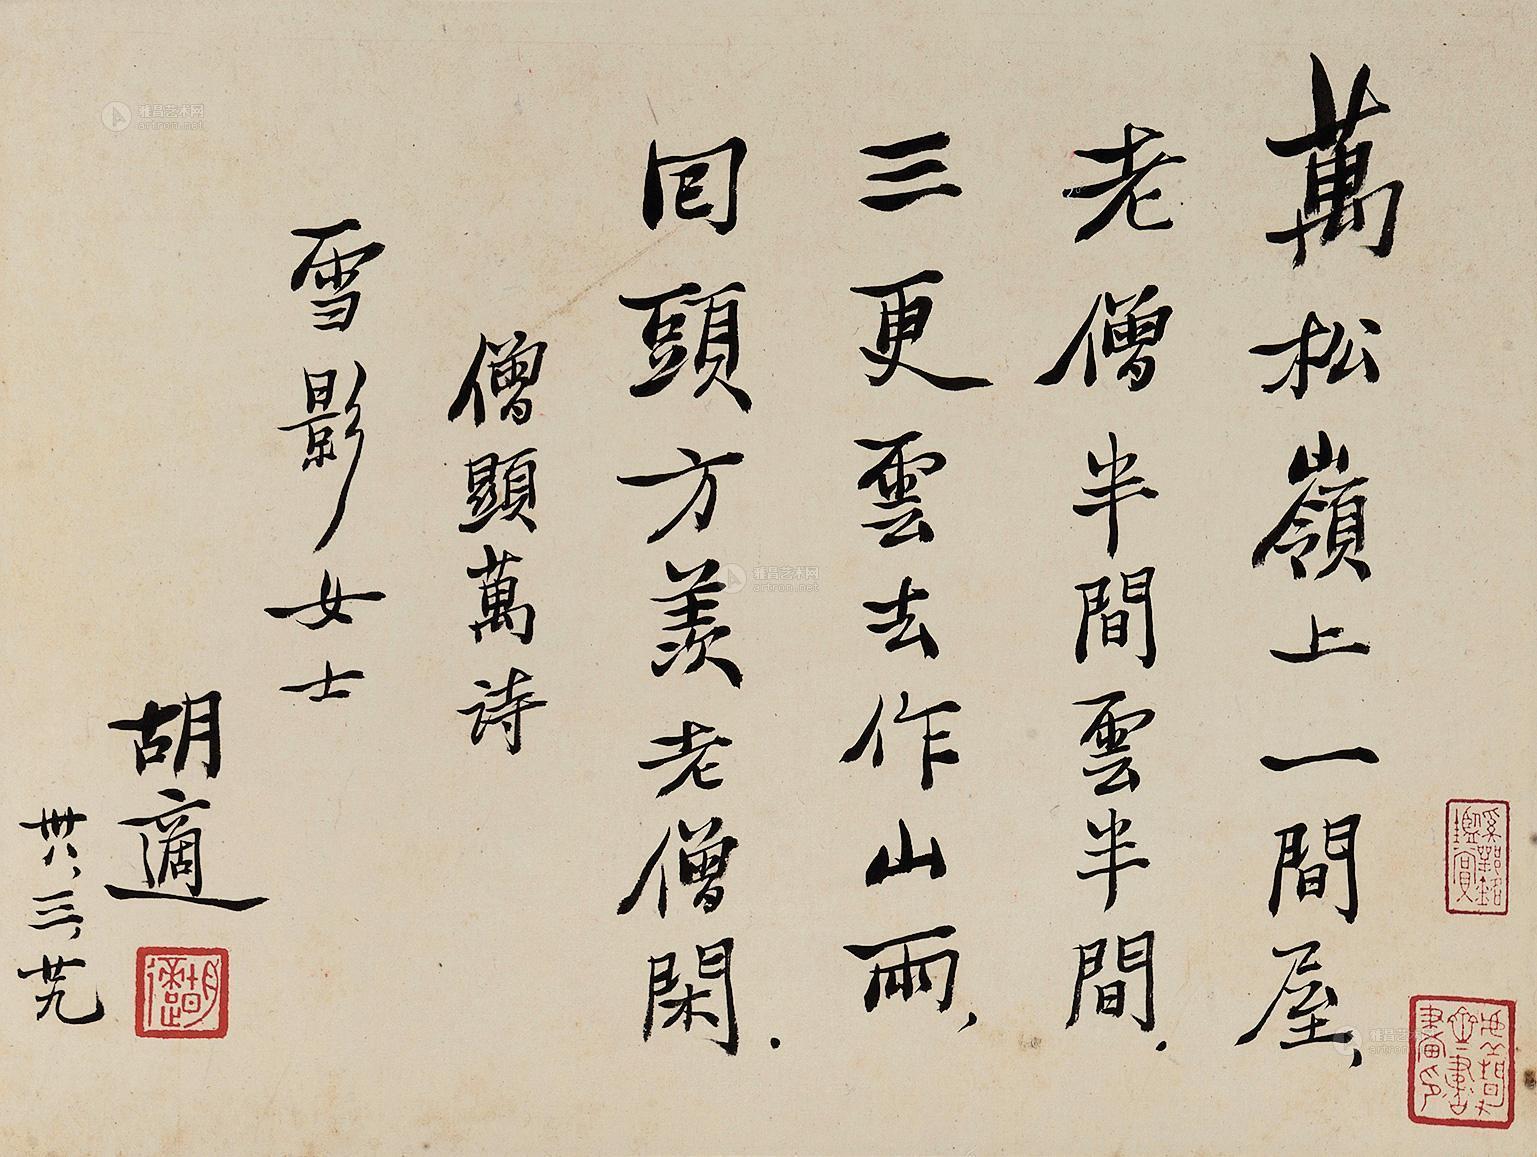 萬松嶺上一間屋、
老僧半間雲半間.
三更雲去作山雨、
回頭方羨老僧閑.
僧顯萬詩
雪影女士
胡適
卅八、三、廿九
胡適
雅昌艺术网
artron.net
雅昌艺术网
artron.net